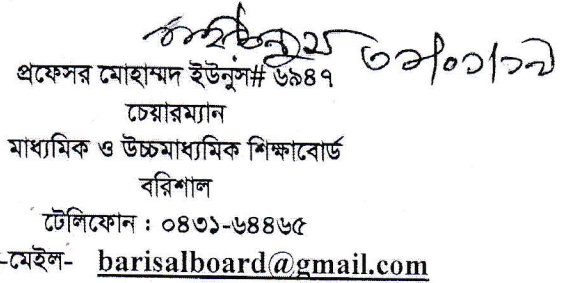 প্রফেসর মোহাম্মদ ইউনুস# ৬৯৪৭
চেয়ারম্যান
মাধ্যমিক ও উচ্চমাধ্যমিক শিক্ষাবোর্ড
বরিশাল
টেলিফোন : ০৪৩১-৬৪৪৬৫
-মেইল- barisalboard@gmail.com